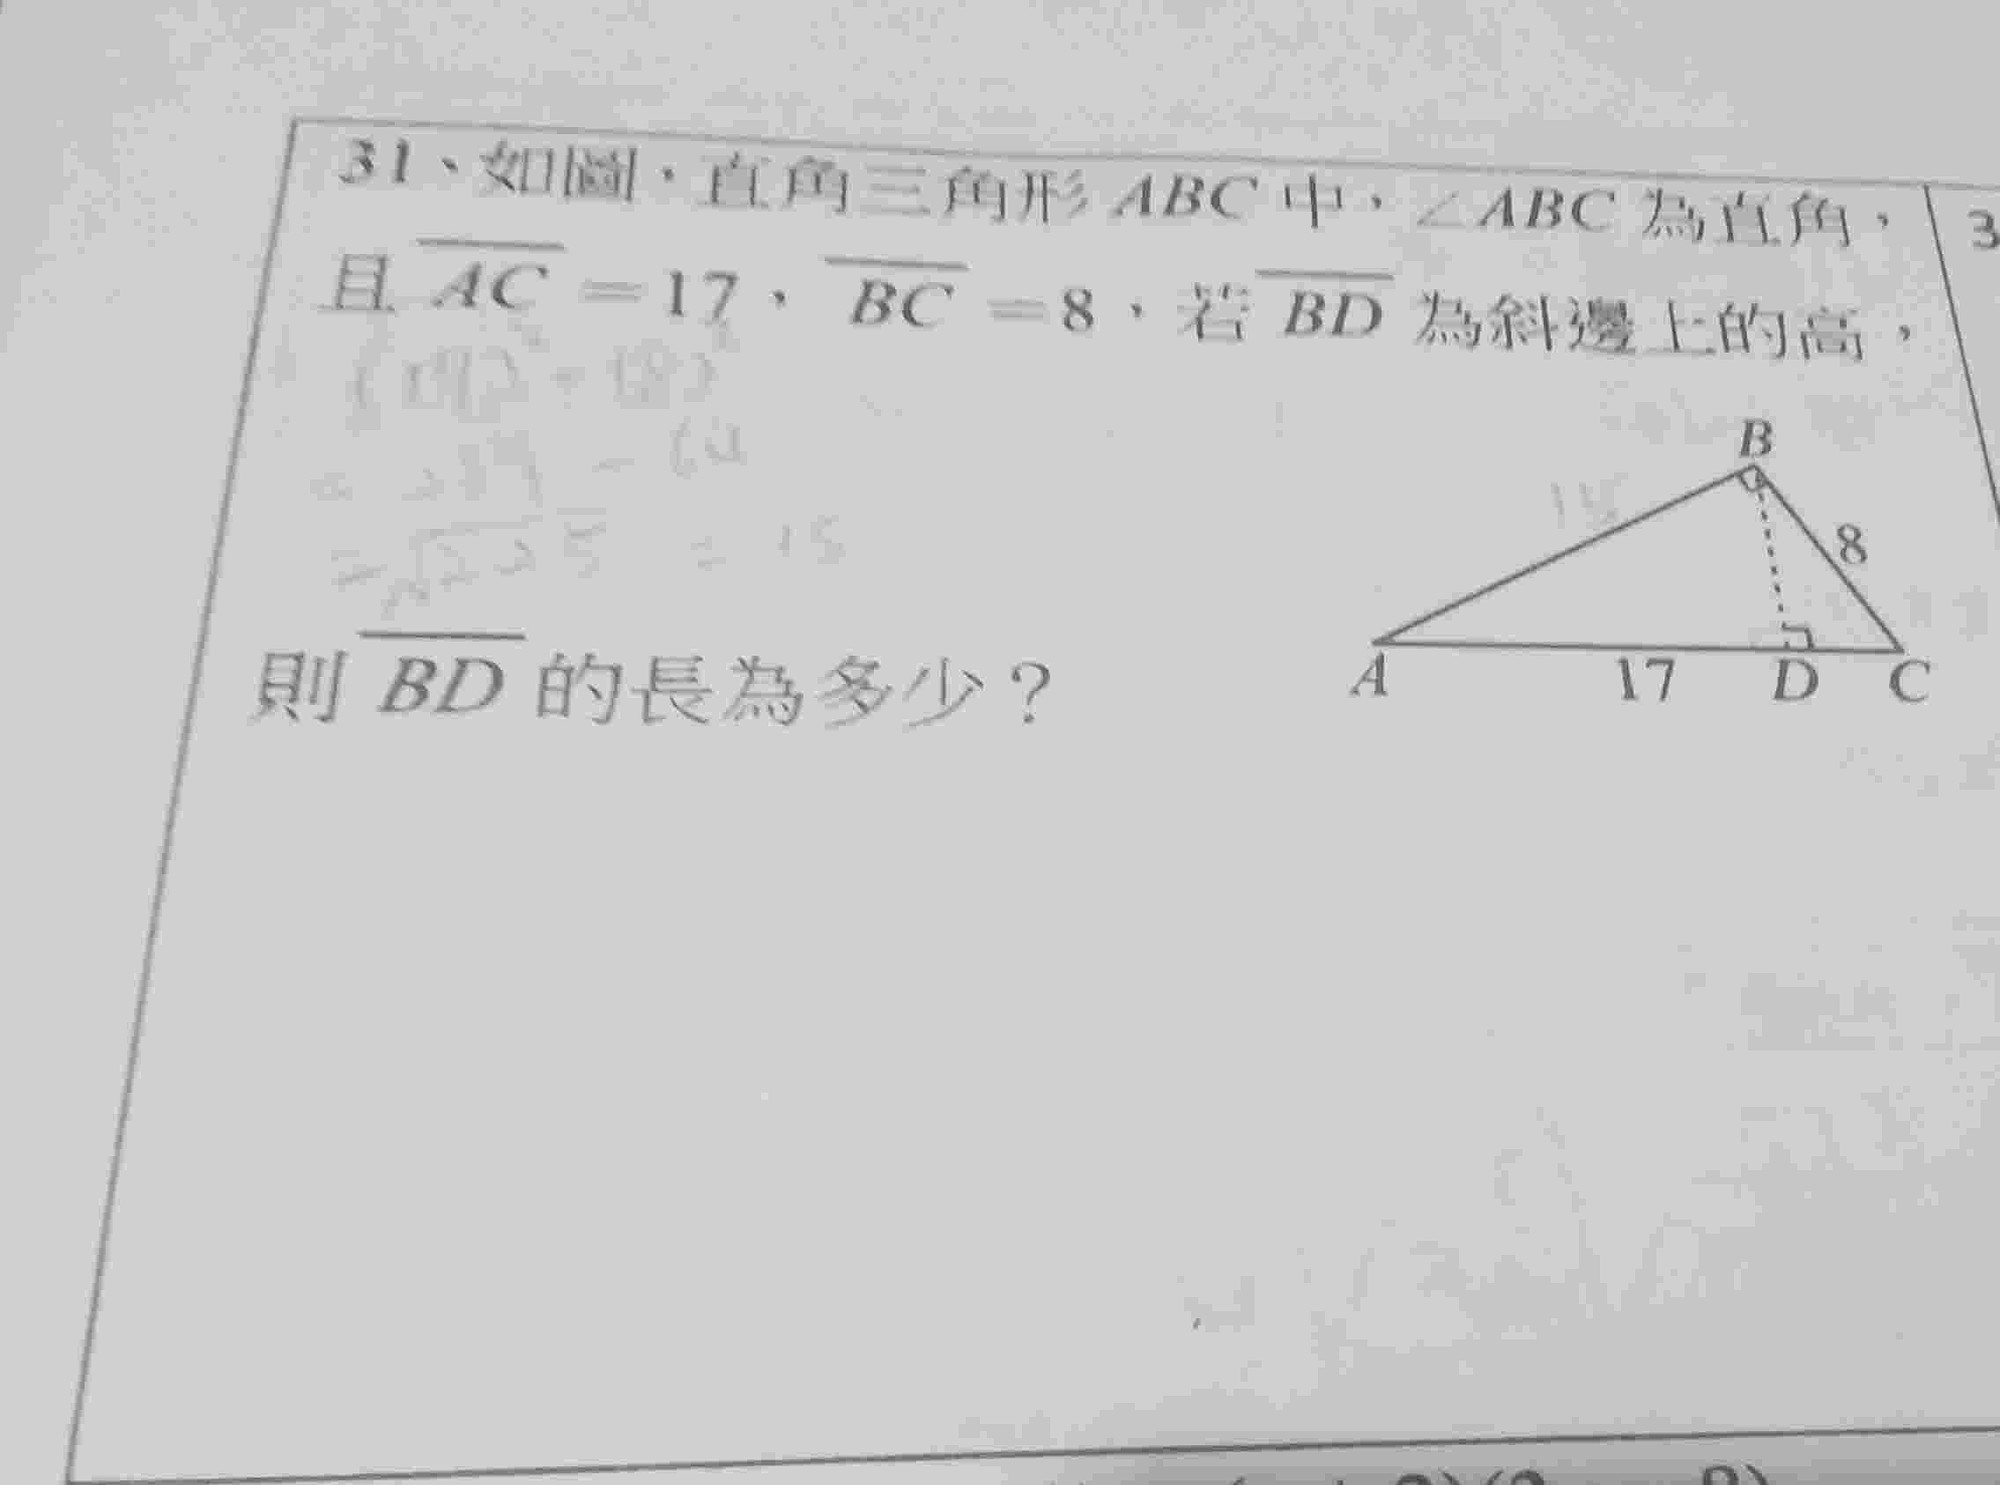 31、如圖，直角三角形 ABC 中，∠ABC 為直角，
且 AC =17， BC =8，若 BD 為斜邊上的高，
= 289 - 64
= √225 = 15
則 BD 的長為多少？
B
15
8
A
17
D
C
3